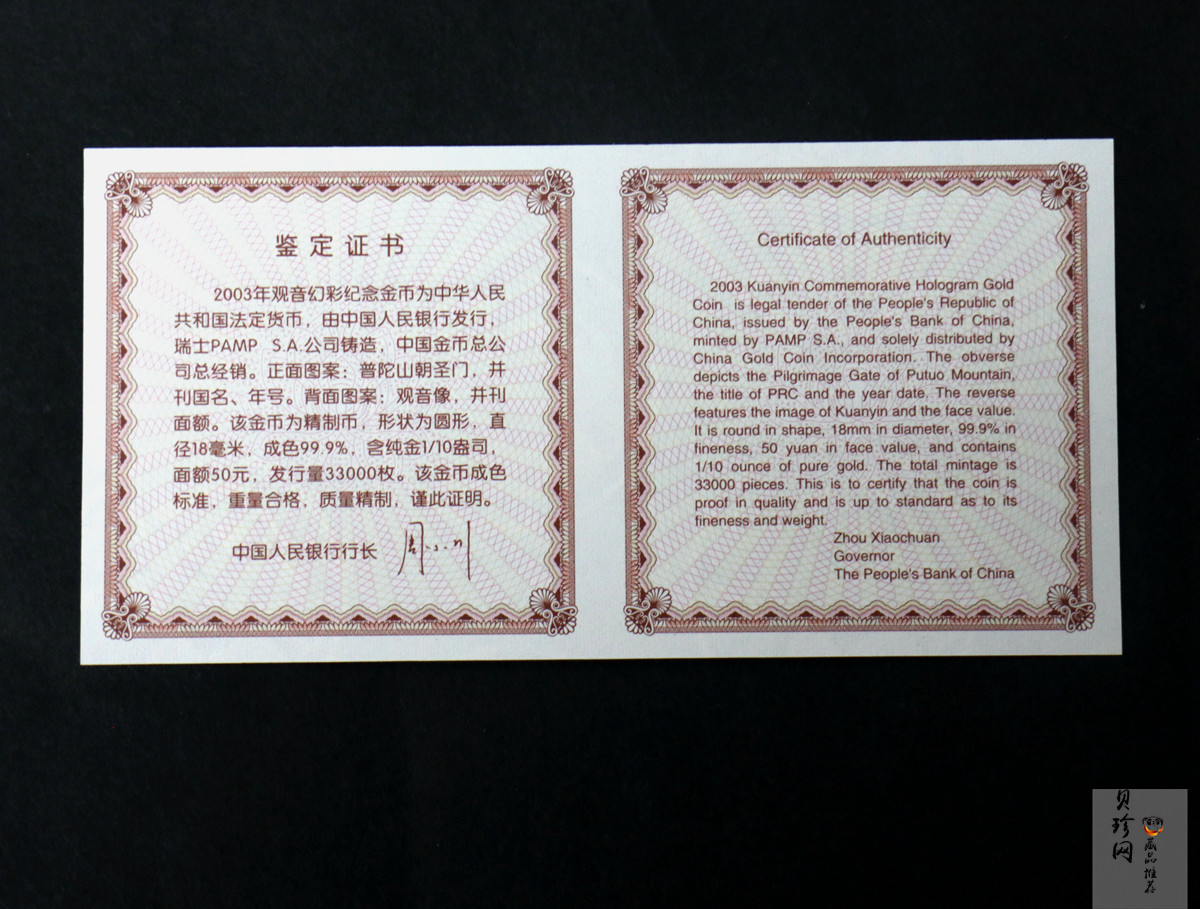 鉴定证书
2003年观音幻彩纪念金币为中华人民
共和国法定货币，由中国人民银行发行，
瑞士PAMP S.A.公司铸造，中国金币总公
司总经销。正面图案：普陀山朝圣门，并
刊国名、年号。背面图案：观音像，并刊
面额。该金币为精制币，形状为圆形，直
径18毫米，成色99.9%，含纯金1/10盎司，
面额50元，发行量33000枚。该金币成色
标准，重量合格，质量精制，谨此证明。
中国人民银行行长 周小川
Certificate of Authenticity
2003 Kuanyin Commemorative Hologram Gold
Coin is legal tender of the People's Republic of
China, issued by the People's Bank of China,
minted by PAMP S.A., and solely distributed by
China Gold Coin Incorporation. The obverse
depicts the Pilgrimage Gate of Putuo Mountain,
the title of PRC and the year date. The reverse
features the image of Kuanyin and the face value.
It is round in shape, 18mm in diameter, 99.9% in
fineness, 50 yuan in face value, and contains
1/10 ounce of pure gold. The total mintage is
33000 pieces. This is to certify that the coin is
proof in quality and is up to standard as to its
fineness and weight.
Zhou Xiaochuan
Governor
The People's Bank of China
贝珍网
藏品推荐